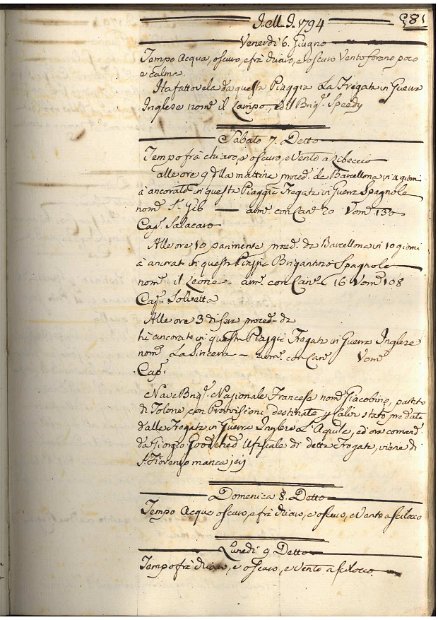 dell' A. 1794
281
Venerdi 6. Giugno
Tempo Acqua, oscuro, e frà chiaro, e oscuro Vento forano poco
e calma
Ha fatto vela da questa Piaggia La Fregata in Guerra
Inglese nom.ª il Campo, e il Brig.º Speedy
Sabato 7. Detto
Tempo frà chiaro, e oscuro, e Vento a Libeccio
alle ore 9 della mattina proced.e da Barcellona in 9 giorni
è ancorato in questa Piaggia Fregata in Guerra Spagnole
nom.ª S.ª — arm.ª con Can.i 20 Uom.i 130
Cap.º Salacaro
Alle ore 10 parimente proced.e da Barcellona in 10 giorni
è ancorato in questa Piaggia Brigantino Spagnole
nom.º il Leone arm.º con Can.i 16 Uom.i 108
Cap.º
Alle ore 3 di sera proced.e da
hà ancorato in questa Piaggia Fregata in Guerra Inglese
nom.ª La Sincera — arm.ª con Can.i Uom.i
Cap.º
Nave Brig.º Nazionale Francese nom.º Giacobino, partito
di Tolone con Provvisioni destinato p Calvi stato predato
dalla Fregata in Guerra Inglese Aquile, ed ora comend.
da Giorgio Uffiziale di detta Fregata, viene di
S. Fiorenzo manca
Domenica 8. Detto
Tempo Acqua oscuro, e frà chiaro, e oscuro, e Vento a scilocco
Lunedi 9. Detto
Tempo frà chiaro, e oscuro, e Vento a scilocco